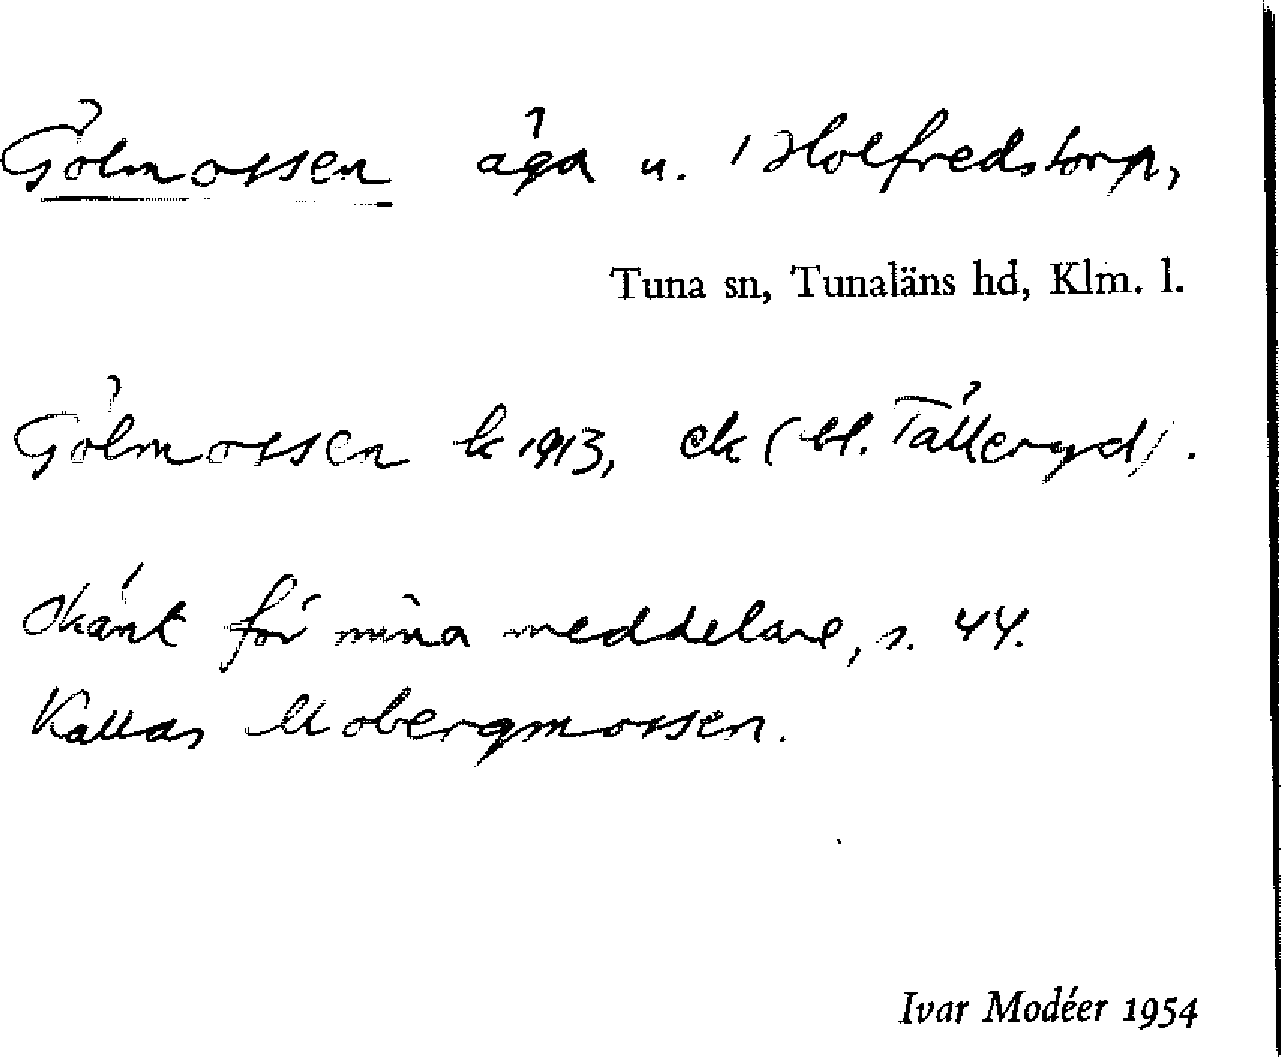 Gölmossen äga u. Holfredstorp,
Tuna sn, Tunaläns hd, Klm. l.
Gölmossen k 1913, ek (bl. Tälleryd).
Okänt för mina meddelare, s. 44.
Kallas Mobergmossen.
Ivar Modéer 1954